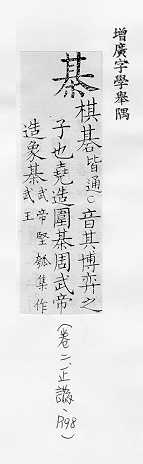 增廣字學舉隅
棊
棋碁皆通○音其博弈之
子也堯造圍棊周武帝
造象棊武帝堅鉢集作
武王
(卷二、正譌、P.98)